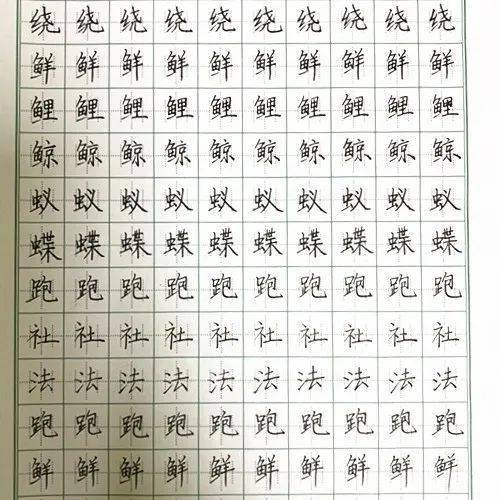 绕绕绕绕绕绕绕绕绕绕
鲜鲜鲜鲜鲜鲜鲜鲜鲜鲜
鲤鲤鲤鲤鲤鲤鲤鲤鲤鲤
鲸鲸鲸鲸鲸鲸鲸鲸鲸鲸
蚁蚁蚁蚁蚁蚁蚁蚁蚁蚁
蝶蝶蝶蝶蝶蝶蝶蝶蝶蝶
跑跑跑跑跑跑跑跑跑跑
社社社社社社社社社社
法法法法法法法法法法
跑跑跑跑跑跑跑跑跑跑
鲜鲜鲜鲜鲜鲜鲜鲜鲜鲜